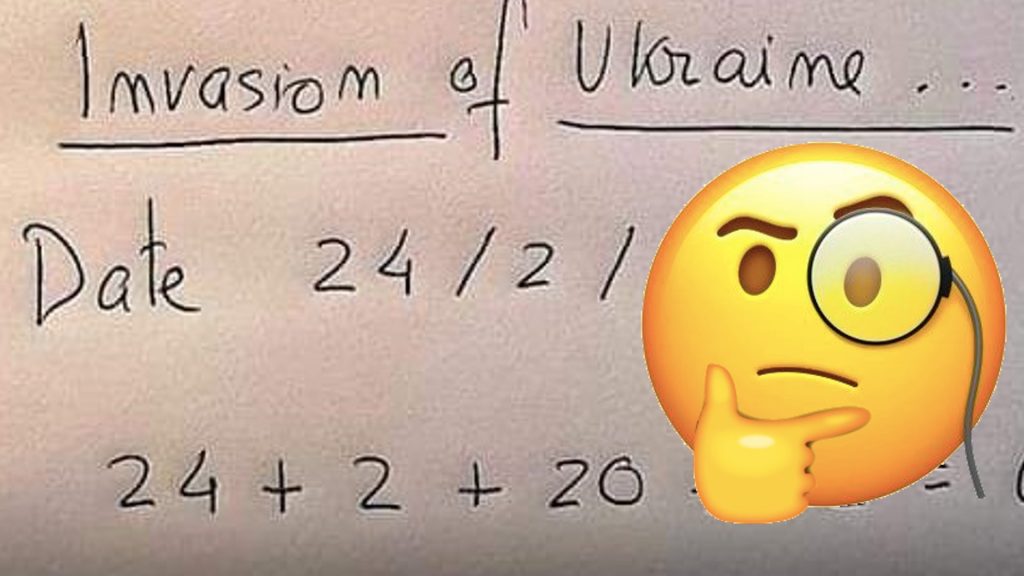 Invasion of Ukraine ...
Date 24/2/
24 + 2 + 20 =